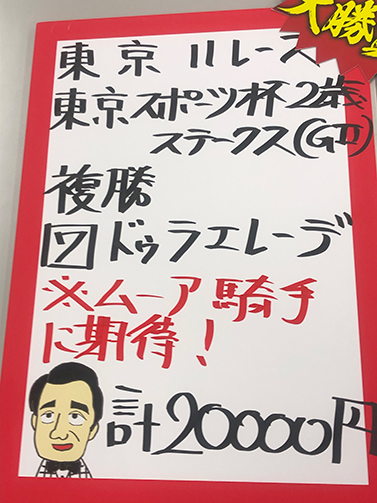 大勝
東京11レース
東京スポーツ杯2歳
ステークス(GⅡ)
複勝
7 ドゥラエレーデ
※ムーア騎手
に期待!
計20000円